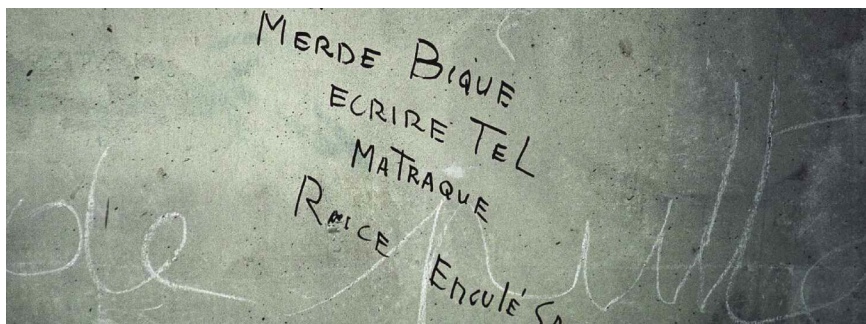 MERDE BIQUE
ECRIRE TEL
MATRAQUE
Enculé
de